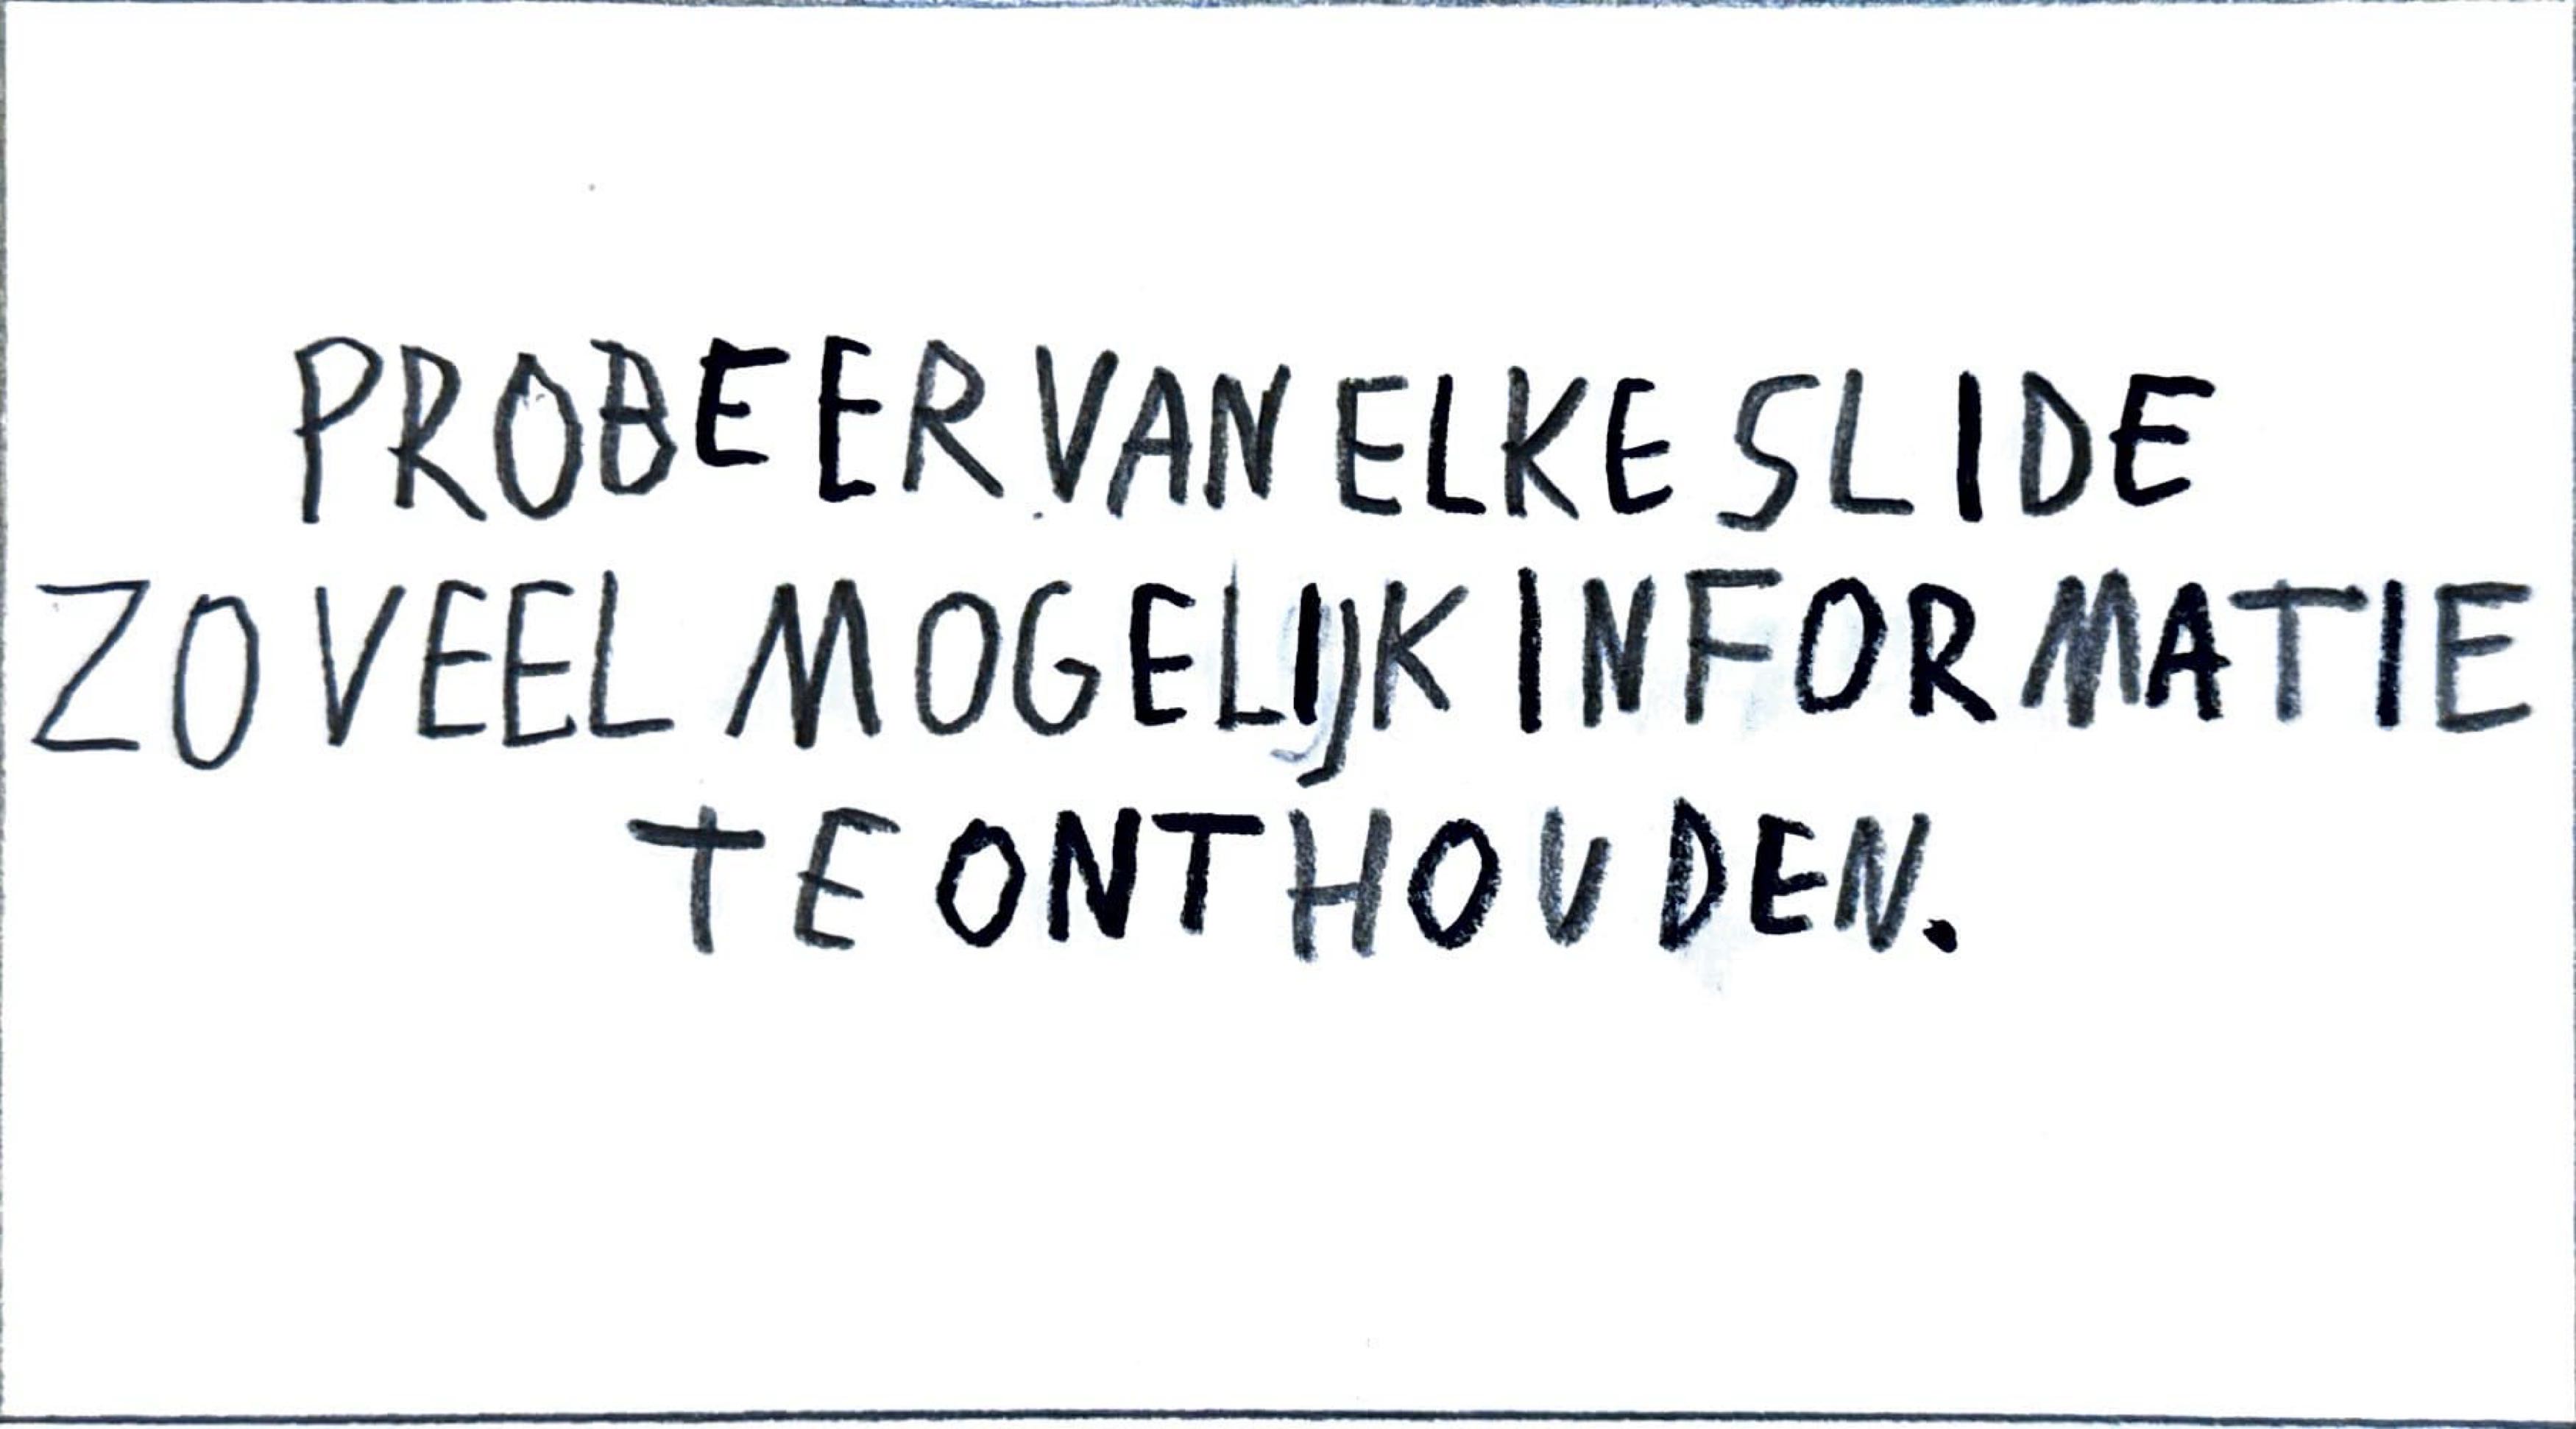 PROBEER VAN ELKE SLIDE
ZOVEEL MOGELIJK INFORMATIE
TE ONTHOUDEN.